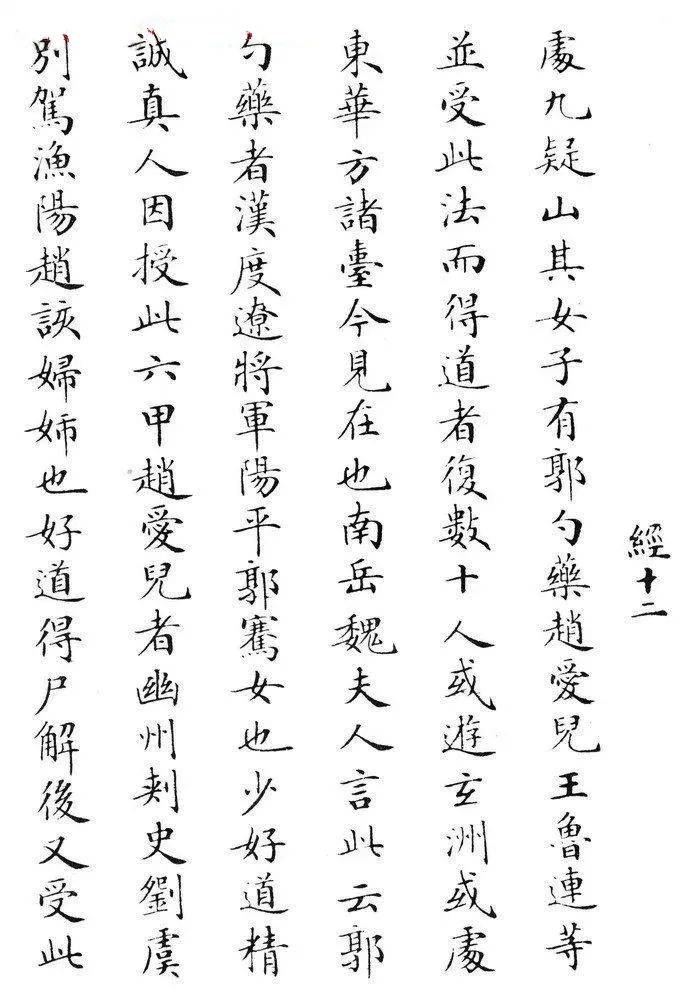 經十二
處九疑山其女子有郭勺藥趙愛兒王魯連等
並受此法而得道者復數十人或遊玄洲或處
東華方諸臺今見在也南岳魏夫人言此云郭
勺藥者漢度遼將軍陽平郭騫女也少好道精
誠真人因授此六甲趙愛兒者幽州刾史劉虞
別駕漁陽趙該婦姉也好道得尸解後又受此